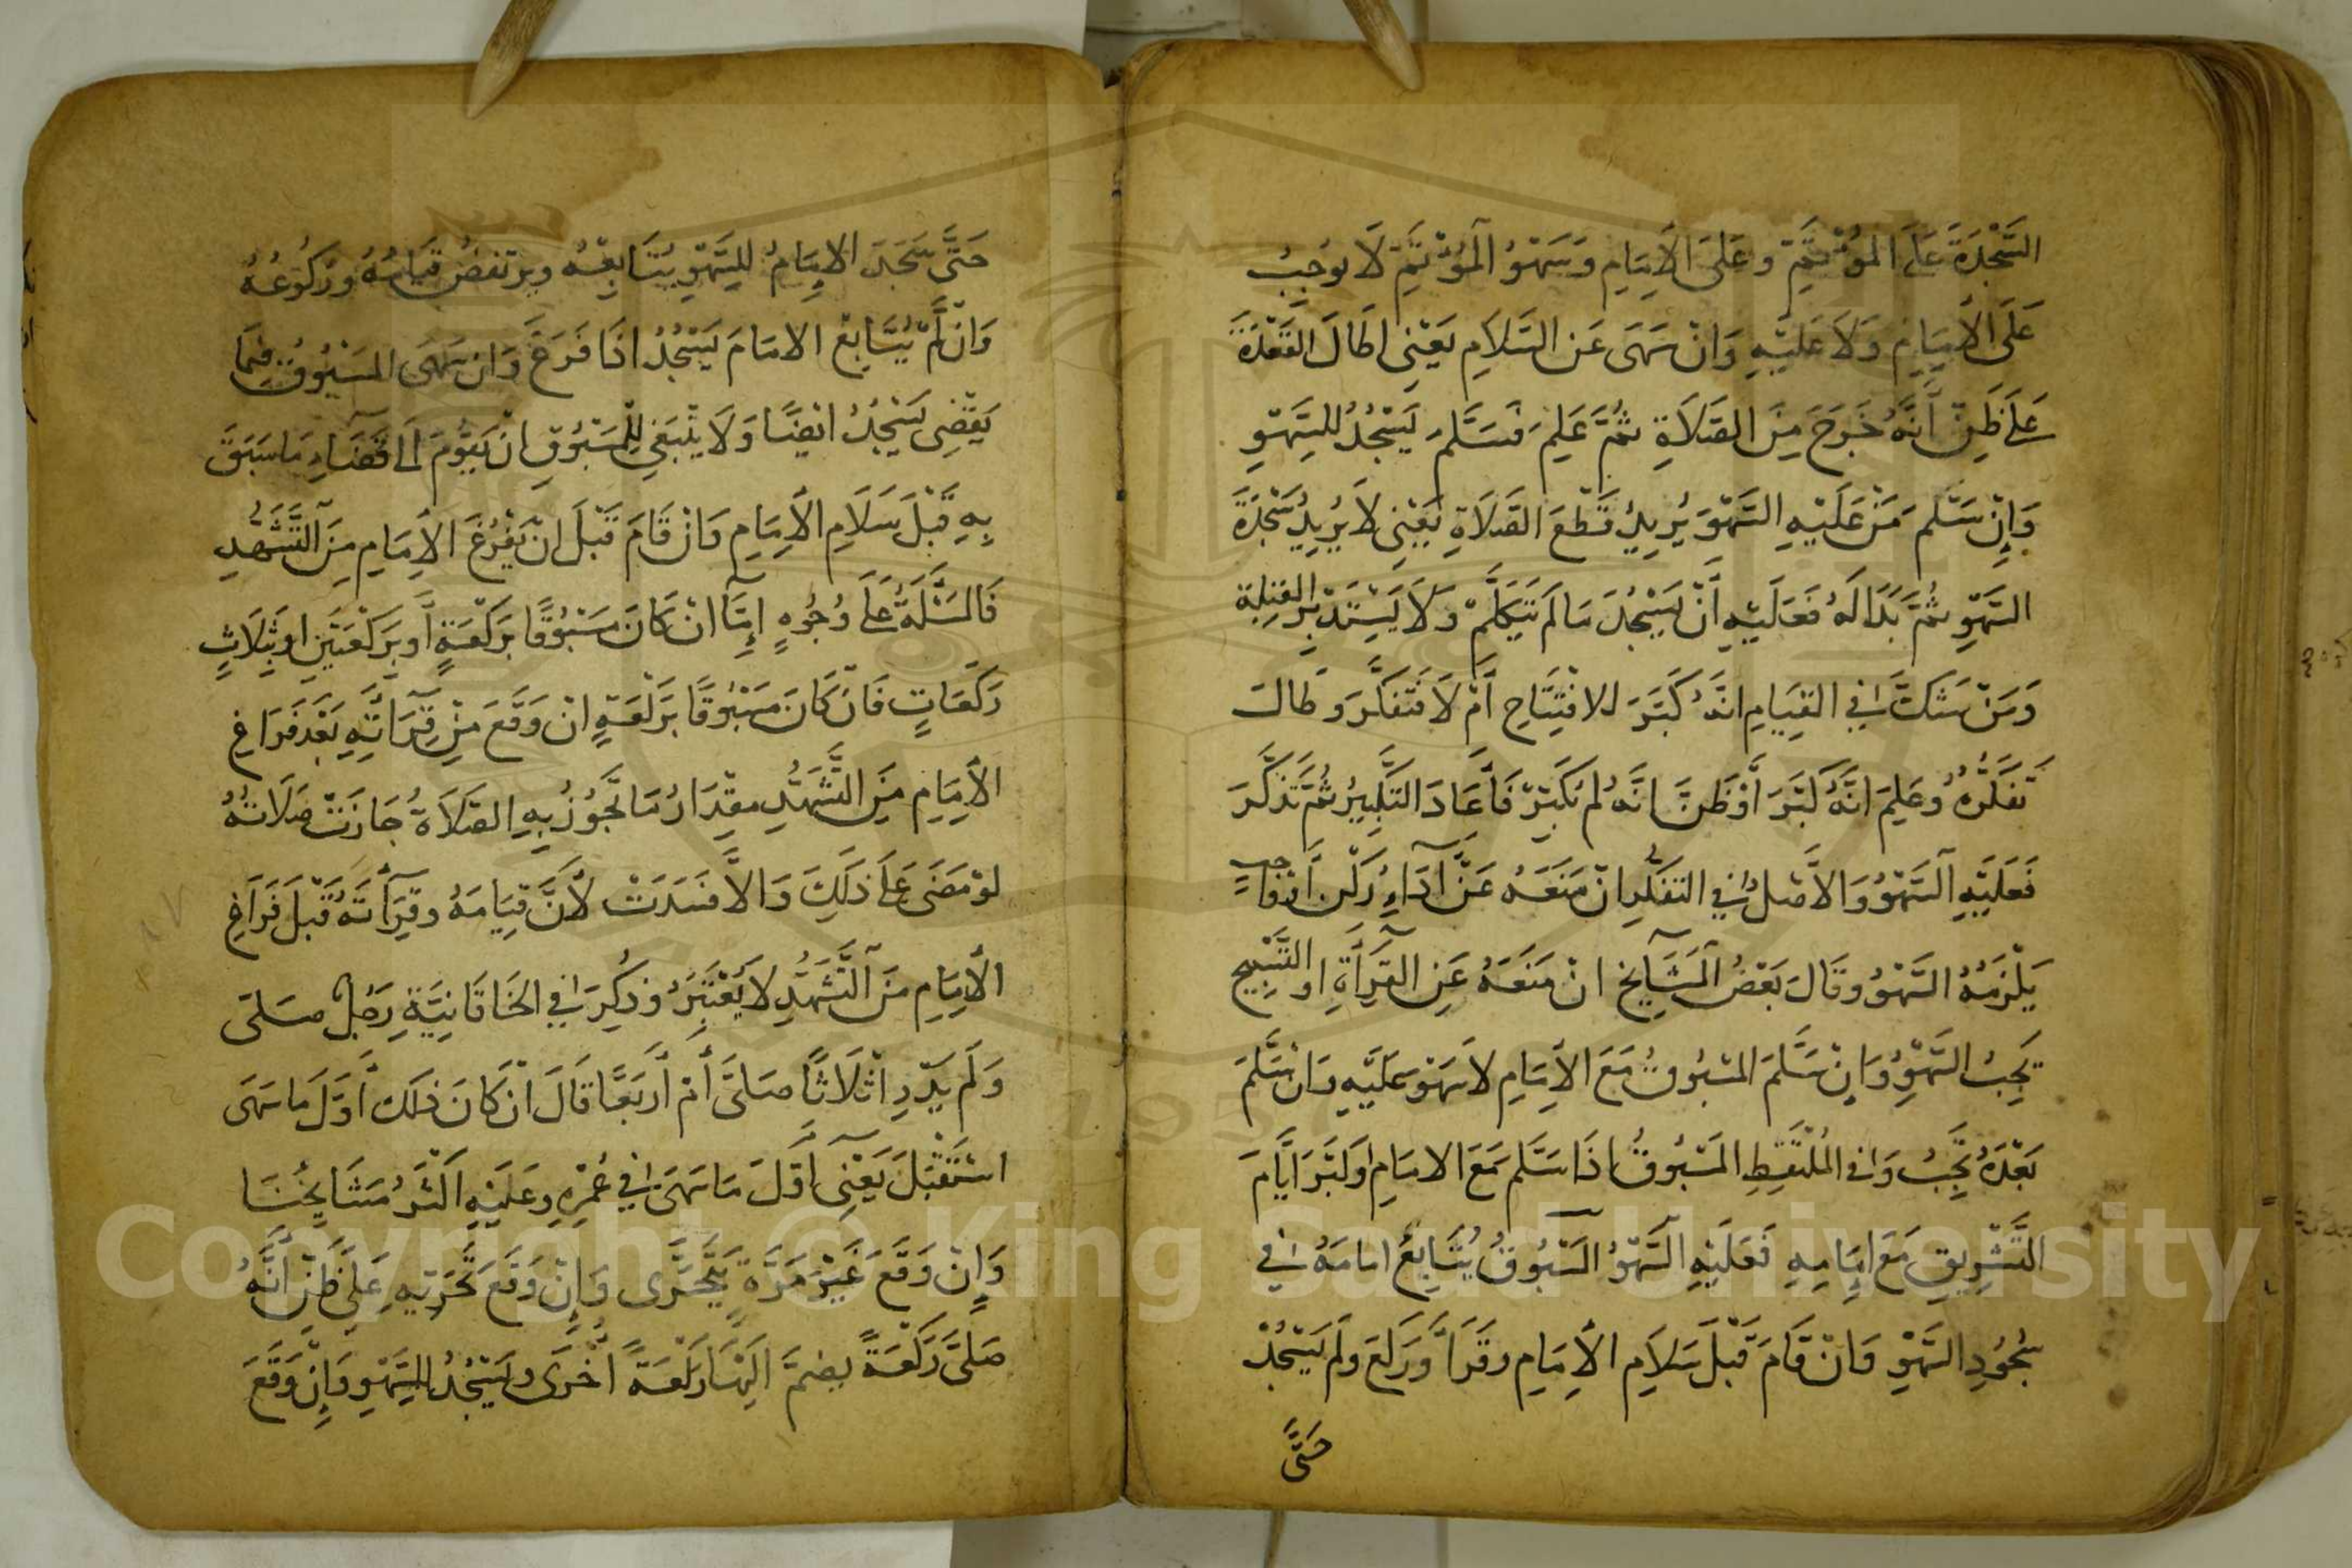 السَّجْدَةَ عَلَى المُؤْتَمِّ وعَلَى الاِمَامِ وَسَهْوُ المُؤْتَمِّ لَا يُوجِبُ
عَلَى الاِمَامِ وَلَا عَلَيْهِ وَانْ سَهَى عَنِ السَّلَامِ يَعْنِى اطَالَ القَعْدَةَ
عَلَى ظَنِّ أَنَّهُ خَرَجَ مِنَ الصَّلَاةِ ثُمَّ عَلِمَ فَسَلَّمَ يَسْجُدُ للسَّهْوِ
وَإِنْ سَلَّمَ مَنْ عَلَيْهِ السَّهْوَ يُرِيدُ قَطْعَ الصَّلَاةِ يَعْنِى لَا يُرِيدُ سَجْدَةَ
السَّهْوِ ثُمَّ بَدَا لَهُ فَعَلَيْهِ أَنْ يَسْجُدَ مَا لَمْ يَتَكَلَّمْ وَلَا يَسْتَدْبِرِ القِبْلَةَ
وَمَنْ شَكَّ فِي القِيَامِ انَّهُ كَبَّرَ للافْتِتَاحِ أَمْ لَا فَتَفَكَّرَ وَطَالَ
تَفَكُّرُهُ وعَلِمَ انَّهُ كَبَّرَ أَوْ ظَنَّ انَّهُ لم يُكَبِّرْ فَأَعَادَ التَّكْبِيرُ ثُمَّ تَذَكَّرَ
فَعَلَيْهِ السَّهْوُ وَالاَصْلُ فِي التَفَكُّرِ انْ مَنَعَهُ عَنْ آدَاءِ رُكْنٍ أَوْ وَاجِبٍ
يَلْزَمُهُ السَّهْوُ وقَالَ بَعْضُ المَشَايِخِ انْ مَنَعَهُ عَنِ القِرَأَةِ او التَّسْبِيحِ
يَجِبُ السَّهْوُ وَانْ سَلَّمَ المَسْبُوقُ مَعَ الاِمَامِ لا سَهْوَ عَلَيْهِ وَانْ سَلَّمَ
بَعْدَهُ يَجِبُ وَفي المُلْتَقِطِ المَسْبُوقُ اذَا سَلَّمَ مَعَ الامَامِ اوكَبَّرَ ايَّامَ
التَّشْرِيقِ مَعَ اِمَامِهِ فَعَلَيْهِ السَّهْوُ المَسْبُوقُ يُتَابِعُ امامَهُ فِي
سُجُودِ السَّهْوِ وَانْ قَامَ قَبْلَ سَلَامِ الاِمَامِ وقَرَأَ وَرَكَعَ وَلَمْ يَسْجُدْ
حَتَّى
حَتَّى سَجَدَ الاِمَامُ للِسَّهْوِ يُتَابِعُهُ ويرتفضُ قِيَامُهُ ورُكُوعُهُ
وَانْ لَمْ يُتَابِعْ الامَامَ يَسْجُدُ اذَا فَرَغَ وَانْ سَهَى المَسْبُوقُ فِيمَا
يَقْضِى يَسْجُدُ ايْضًا وَلَا يَنْبَغِي لِلْمَسْبُوقِ انْ يَقُومَ الَى قَضَاءِ مَا سَبَقَ
بِهِ قَبْلَ سَلَامِ الاِمَامِ وَانْ قَامَ قَبْلَ انْ يَفْرُغَ الاِمَامِ مِنَ التَّشَهُّدِ
فَالمَسْئَلَةُ عَلَى وُجُوهٍ إمَّا انْ كَانَ مَسْبُوقًا بِرَكْعَةٍ أَو بِرَكْعَتَيْنِ او بِثَلَاثِ
رَكَعَاتٍ فَانْ كَانَ مَسْبُوقًا بِرَكْعَةٍ انْ وَقَعَ مِنْ قِرَاتِهِ بَعْدَ فَرَاغِ
الاِمَامِ مِنَ التَّشَهُّدِ مقِْدَارُ مَا تَجُوزُ بِهِ الصَّلَاةُ جَازَتْ صَلَاتُهُ
لوْ مَضَى عَلَى ذلِكَ وَالَّا فَسَدَتْ لاَنَّ قِيَامَهُ وقِرَأَتَهُ قَبْلَ فَرَاغِ
الاِمَامِ مِنَ التَّشَهُّدِ لَا يُعْتَبَرُ وذُكِرَ فِي الخَاقَانِيَّةِ رَجُلٌ صَلَّى
وَلَمْ يَدْرِ اثَلَاثًا صَلَّى أَمْ أَرْبَعًا قَالَ انْ كَانَ ذلِكَ أَوَّلَ مَا سَهَى
اسْتَقْبَلَ يَعْنِى أَوَّلَ مَا سَهَى فِي عُمْرِهِ وعَلَيْهِ اكْثَرُ مَشَايِخُنَا
وَإِنْ وَقَعَ غَيْرَ مَرَّةٍ يَتَحَرَّى وَإِنْ وَقَعَ تَحَرّيهِ عَلَى ظَنِّ أَنَّهُ
صَلَّى رَكْعَةً يضمّ الَيْهَا رَكْعَةً أُخْرَى ويَسْجُدُ للسَّهْوِ وَإِنْ وَقَعَ
Copyright © King Saud University
1957